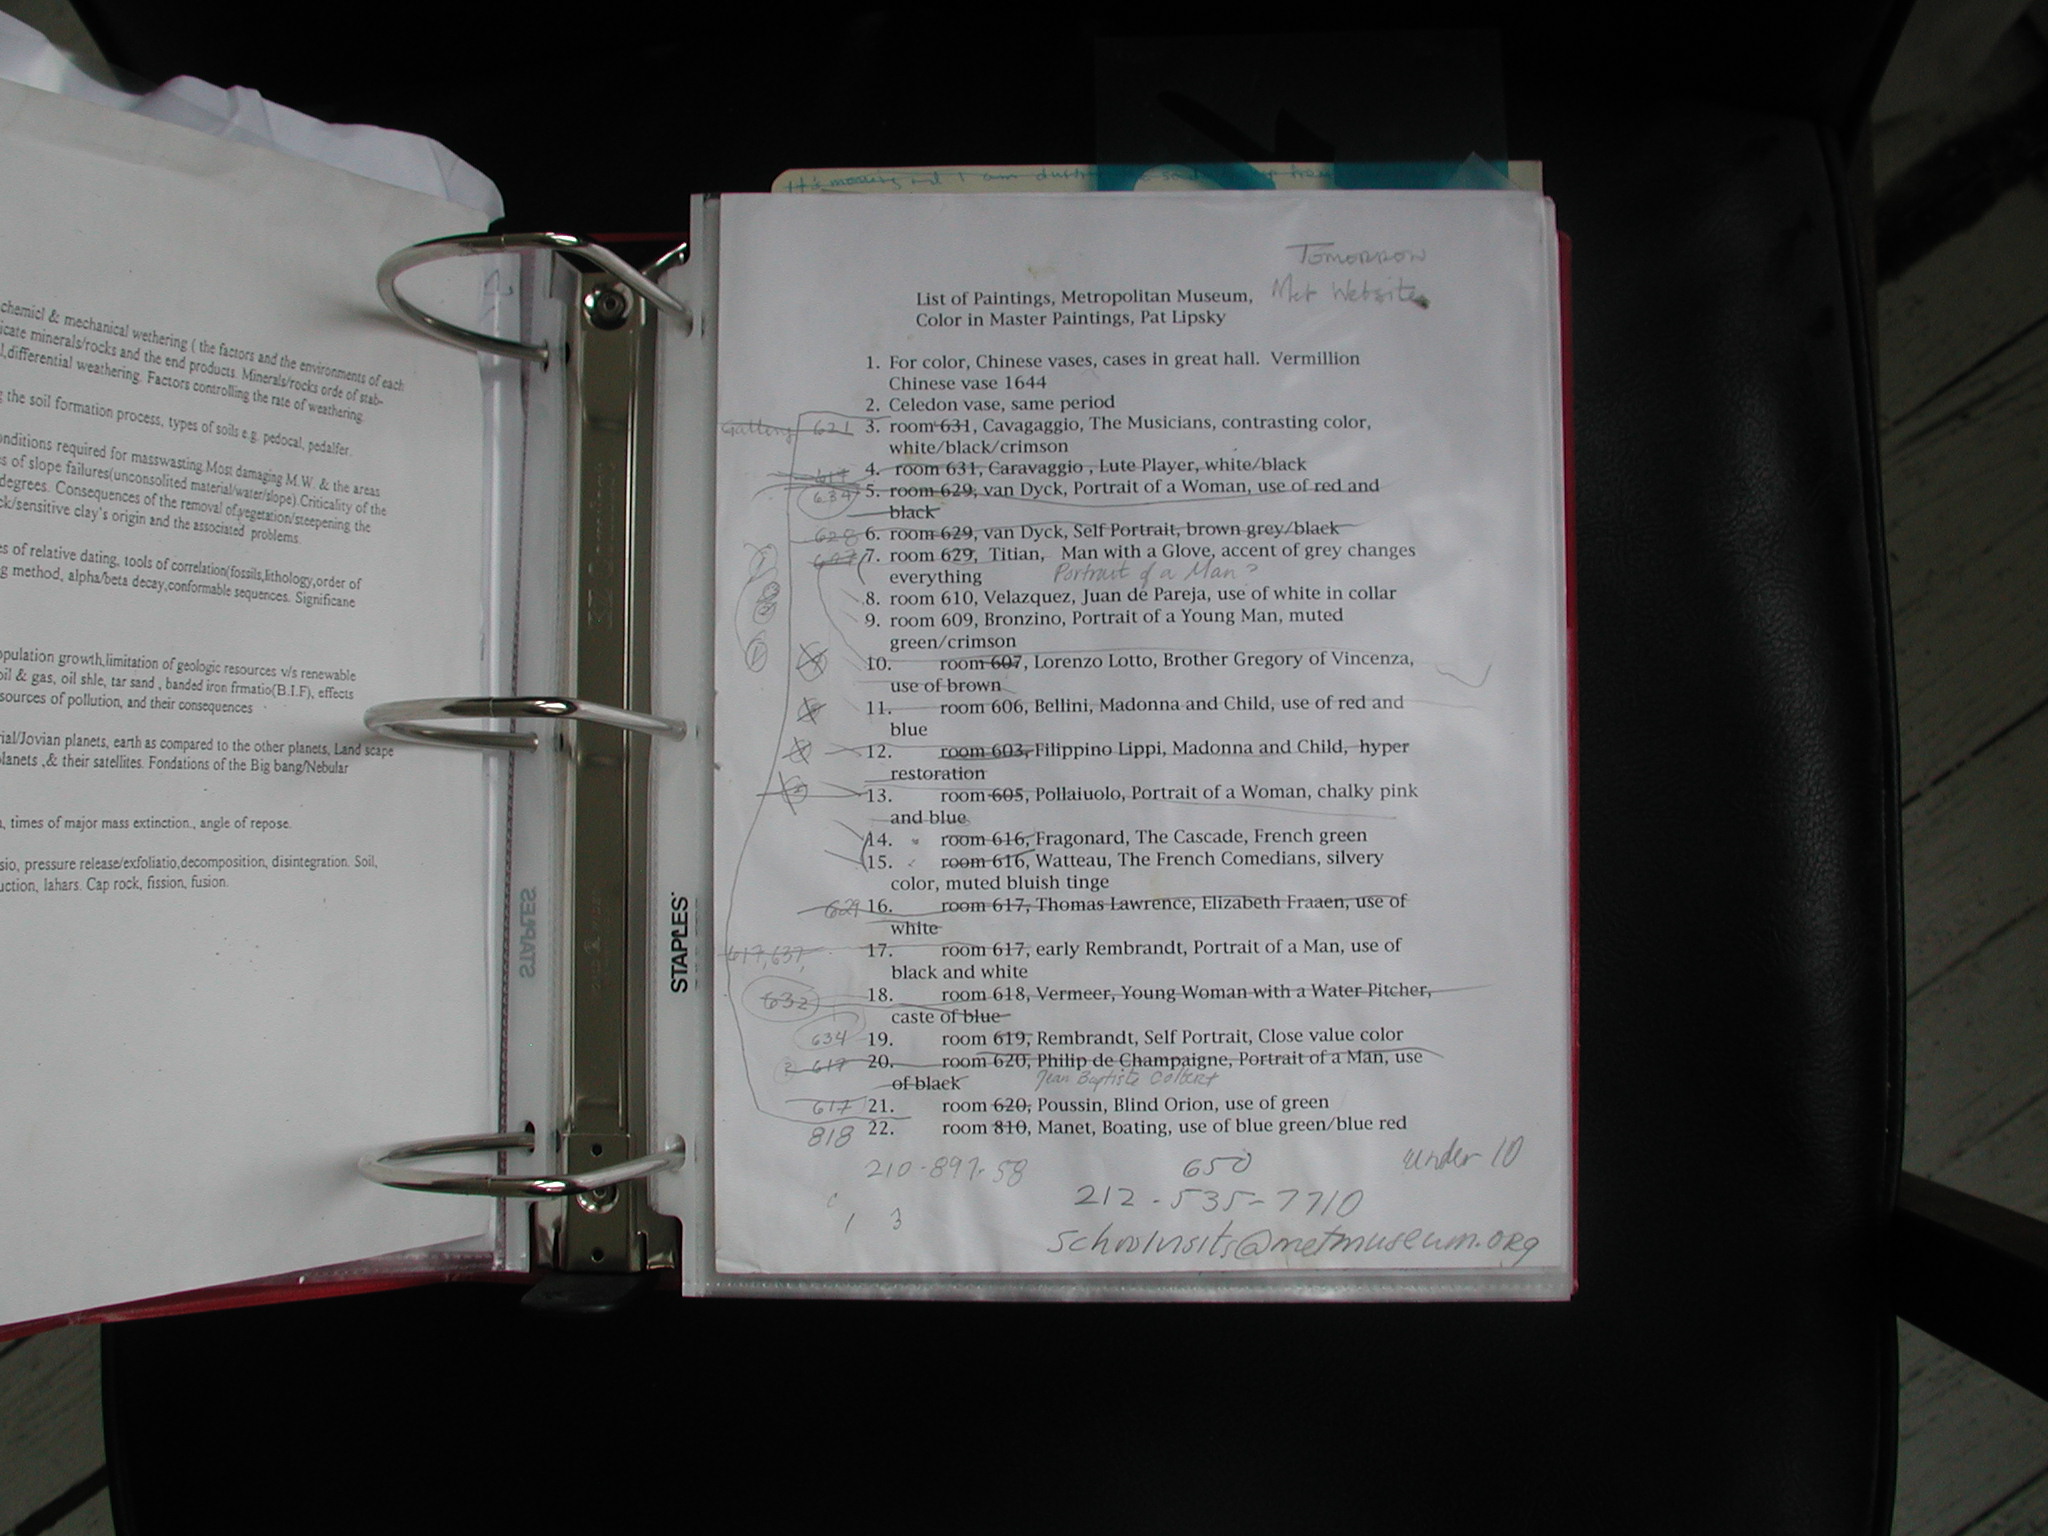 chemicl & mechanical wethering ( the factors and the environments of each
icate minerals/rocks and the end products. Minerals/rocks orde of stab-
l,differential weathering. Factors controlling the rate of weathering.
g the soil formation process, types of soils e.g. pedocal, pedalfer.
onditions required for masswasting.Most damaging M.W. & the areas
es of slope failures(unconsolited material/water/slope).Criticality of the
degrees. Consequences of the removal of,vegetation/steepening the
ck/sensitive clay's origin and the associated problems.
es of relative dating, tools of correlation(fossils,lithology,order of
ng method, alpha/beta decay,conformable sequences. Significane
opulation growth,limitation of geologic resources v/s renewable
oil & gas, oil shle, tar sand , banded iron frmatio(B.I.F), effects
sources of pollution, and their consequences
rial/Jovian planets, earth as compared to the other planets, Land scape
planets ,& their satellites. Fondations of the Big bang/Nebular
, times of major mass extinction., angle of repose.
sio, pressure release/exfoliatio,decomposition, disintegration. Soil,
uction, lahars. Cap rock, fission, fusion.
STAPLES
STAPLES
It's I am
Tomorrow
Met Website
List of Paintings, Metropolitan Museum,
Color in Master Paintings, Pat Lipsky
1. For color, Chinese vases, cases in great hall. Vermillion
Chinese vase 1644
2. Celedon vase, same period
Gallery 621 3. room 631, Cavagaggio, The Musicians, contrasting color,
white/black/crimson
4. room 631, Caravaggio , Lute Player, white/black
634 5. room 629, van Dyck, Portrait of a Woman, use of red and
black
628 6. room 629, van Dyck, Self Portrait, brown grey/black
607 7. room 629, Titian, Man with a Glove, accent of grey changes
everything Portrait of a Man?
8. room 610, Velazquez, Juan de Pareja, use of white in collar
9. room 609, Bronzino, Portrait of a Young Man, muted
green/crimson
10. room 607, Lorenzo Lotto, Brother Gregory of Vincenza,
use of brown
11. room 606, Bellini, Madonna and Child, use of red and
blue
12. room 603, Filippino Lippi, Madonna and Child, hyper
restoration
13. room 605, Pollaiuolo, Portrait of a Woman, chalky pink
and blue
14. room 616, Fragonard, The Cascade, French green
15. room 616, Watteau, The French Comedians, silvery
color, muted bluish tinge
629 16. room 617, Thomas Lawrence, Elizabeth Fraaen, use of
white
617, 637, 17. room 617, early Rembrandt, Portrait of a Man, use of
black and white
632 18. room 618, Vermeer, Young Woman with a Water Pitcher,
caste of blue
634 19. room 619, Rembrandt, Self Portrait, Close value color
617 20. room 620, Philip de Champaigne, Portrait of a Man, use
of black Jean Baptiste Colbert
617 21. room 620, Poussin, Blind Orion, use of green
818 22. room 810, Manet, Boating, use of blue green/blue red
210-897-58 650 under 10
212-535-7710
1 3
schoolvisits@metmuseum.org